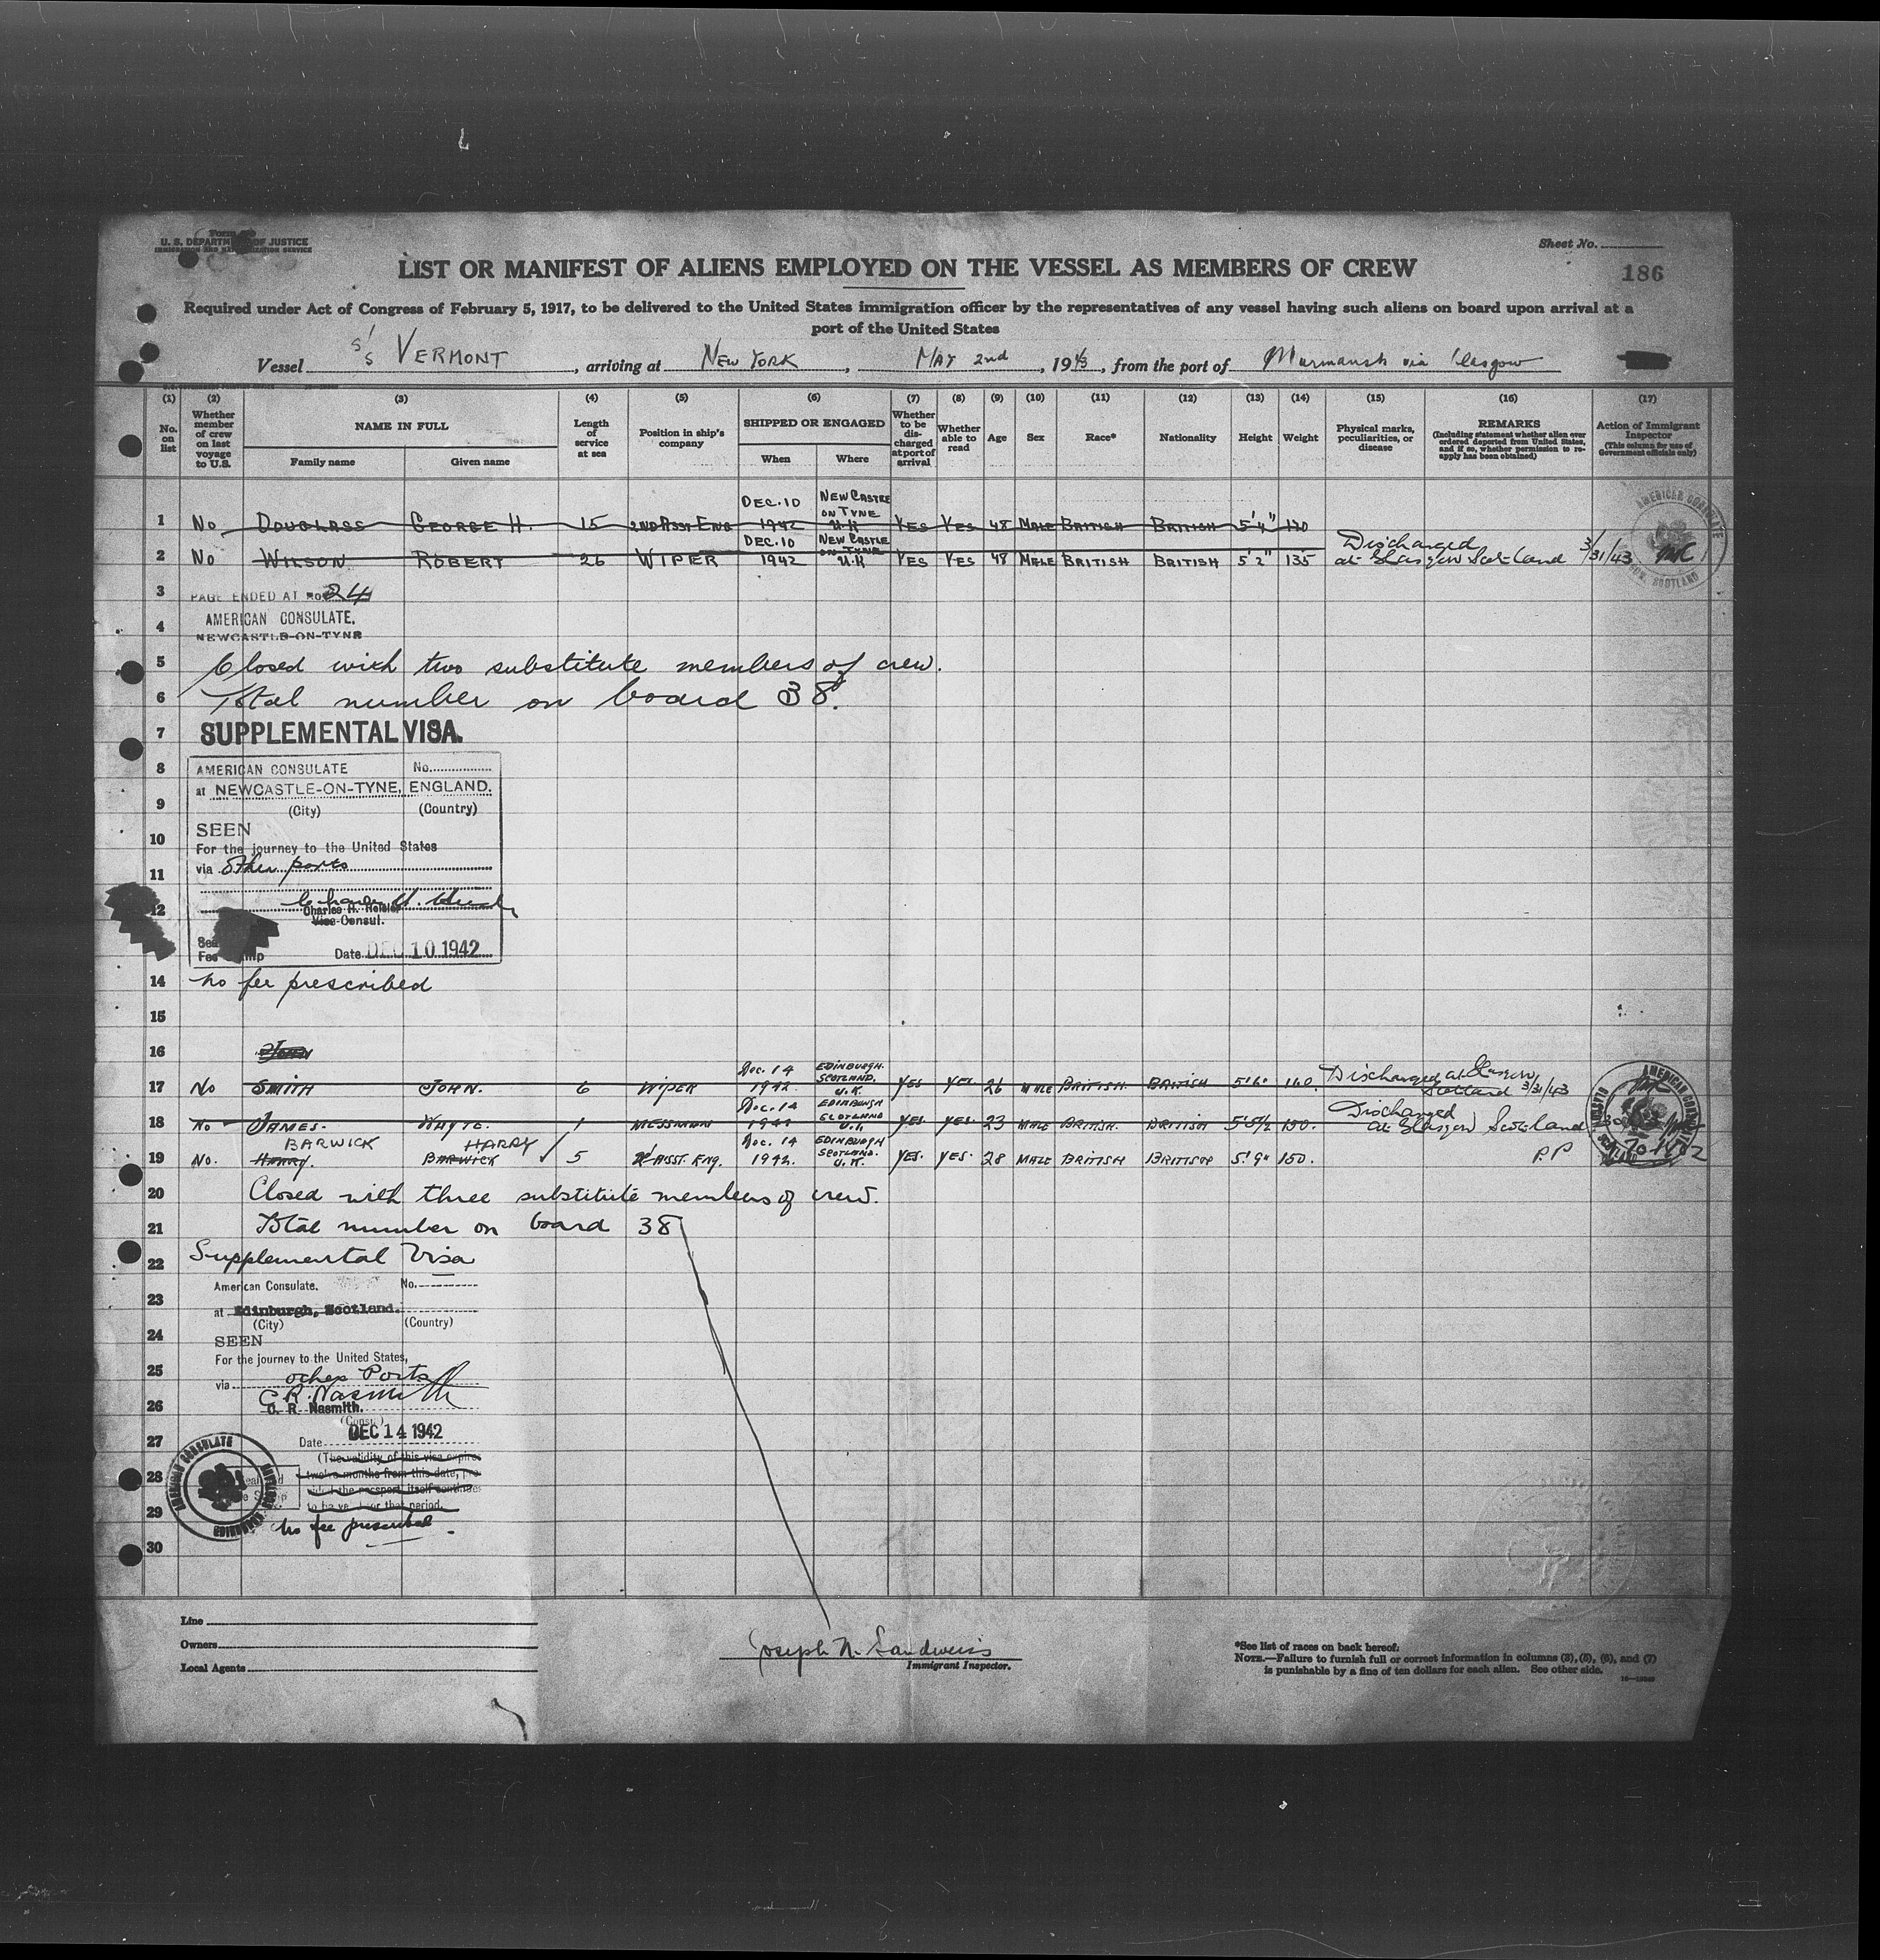 Form
U. S. DEPARTMENT OF JUSTICE
IMMIGRATION AND NATURALIZATION SERVICE
Sheet No.
LIST OR MANIFEST OF ALIENS EMPLOYED ON THE VESSEL AS MEMBERS OF CREW
186
Required under Act of Congress of February 5, 1917, to be delivered to the United States immigration officer by the representatives of any vessel having such aliens on board upon arrival at a
port of the United States
Vessel S/S VERMONT, arriving at NEW YORK, MAY 2nd, 1943, from the port of Murmansk via Glasgow
(1) (2) (3) (4) (5) (6) (7) (8) (9) (10) (11) (12) (13) (14) (15) (16) (17)
No. on list
Whether member of crew on last voyage to U.S.
NAME IN FULL
Family name
Given name
Length of service at sea
Position in ship's company
SHIPPED OR ENGAGED
When
Where
Whether to be discharged at port of arrival
Whether able to read
Age
Sex
Race*
Nationality
Height
Weight
Physical marks, peculiarities, or disease
REMARKS
(Including statement whether alien ever ordered deported from United States, and if so, whether permission to reapply has been obtained)
Action of Immigrant Inspector
(This column for use of Government officials only)
1 No DOUGLASS GEORGE H. 15 2ND ASST ENG DEC. 10 1942 NEW CASTLE ON TYNE U.K YES YES 48 MALE BRITISH BRITISH 5'4" 130
2 No WILSON ROBERT 26 WIPER DEC. 10 1942 NEW CASTLE ON TYNE U.K YES YES 48 MALE BRITISH BRITISH 5'2" 135 Discharged at Glasgow Scotland 3/31/43
3 PAGE ENDED AT NO 24
4 AMERICAN CONSULATE,
NEWCASTLE-ON-TYNE
5 Closed with two substitute members of crew.
6 Total number on board 38.
7 SUPPLEMENTAL VISA.
8 AMERICAN CONSULATE No.
at NEWCASTLE-ON-TYNE, ENGLAND.
9 (City) (Country)
10 SEEN
For the journey to the United States
11 via Other ports
12
Charles H. Heisler
Vice Consul.
Date DEC 10 1942
14 No fee prescribed
15
16 JOHN
17 No SMITH JOHN. 6 WIPER Dec. 14 1942. EDINBURGH. SCOTLAND. U.K. YES YES. 26 MALE BRITISH. BRITISH 5'6" 140. Discharged at Glasgow Scotland 3/31/43
18 No JAMES. WHYTE. 1 MESSMAN Dec. 14 1942 EDINBURGH SCOTLAND U.K. YES. YES. 23 MALE BRITISH. BRITISH 5'5½ 130. Discharged at Glasgow Scotland
BARWICK HARRY
19 No. HARRY. BARWICK 5 2nd ASST. ENG. Dec. 14 1942. EDINBURGH SCOTLAND. U.K. YES. YES. 28 MALE BRITISH BRITISH 5'.9" 150. P.P
AMERICAN CONSULATE
GLASGOW, SCOTLAND
20 Closed with three substitute members of crew.
21 Total number on board 38
22 Supplemental Visa
American Consulate. No.
23 at Edinburgh, Scotland.
(City) (Country)
24 SEEN
For the journey to the United States,
25 via other Ports
C.R. Nasmith
26 C. R. Nasmith.
(Consul)
27 Date DEC 14 1942
(The validity of this visa expires
28 twelve months from this date, pro-
vided the passport itself continues
29 to be valid for that period.
AMERICAN CONSULATE EDINBURGH
No fee prescribed.
30
Line
Owners
Local Agents
Joseph N. Sandweiss
Immigrant Inspector.
*See list of races on back hereof.
NOTE.—Failure to furnish full or correct information in columns (3), (5), (6), and (7)
is punishable by a fine of ten dollars for each alien. See other side.